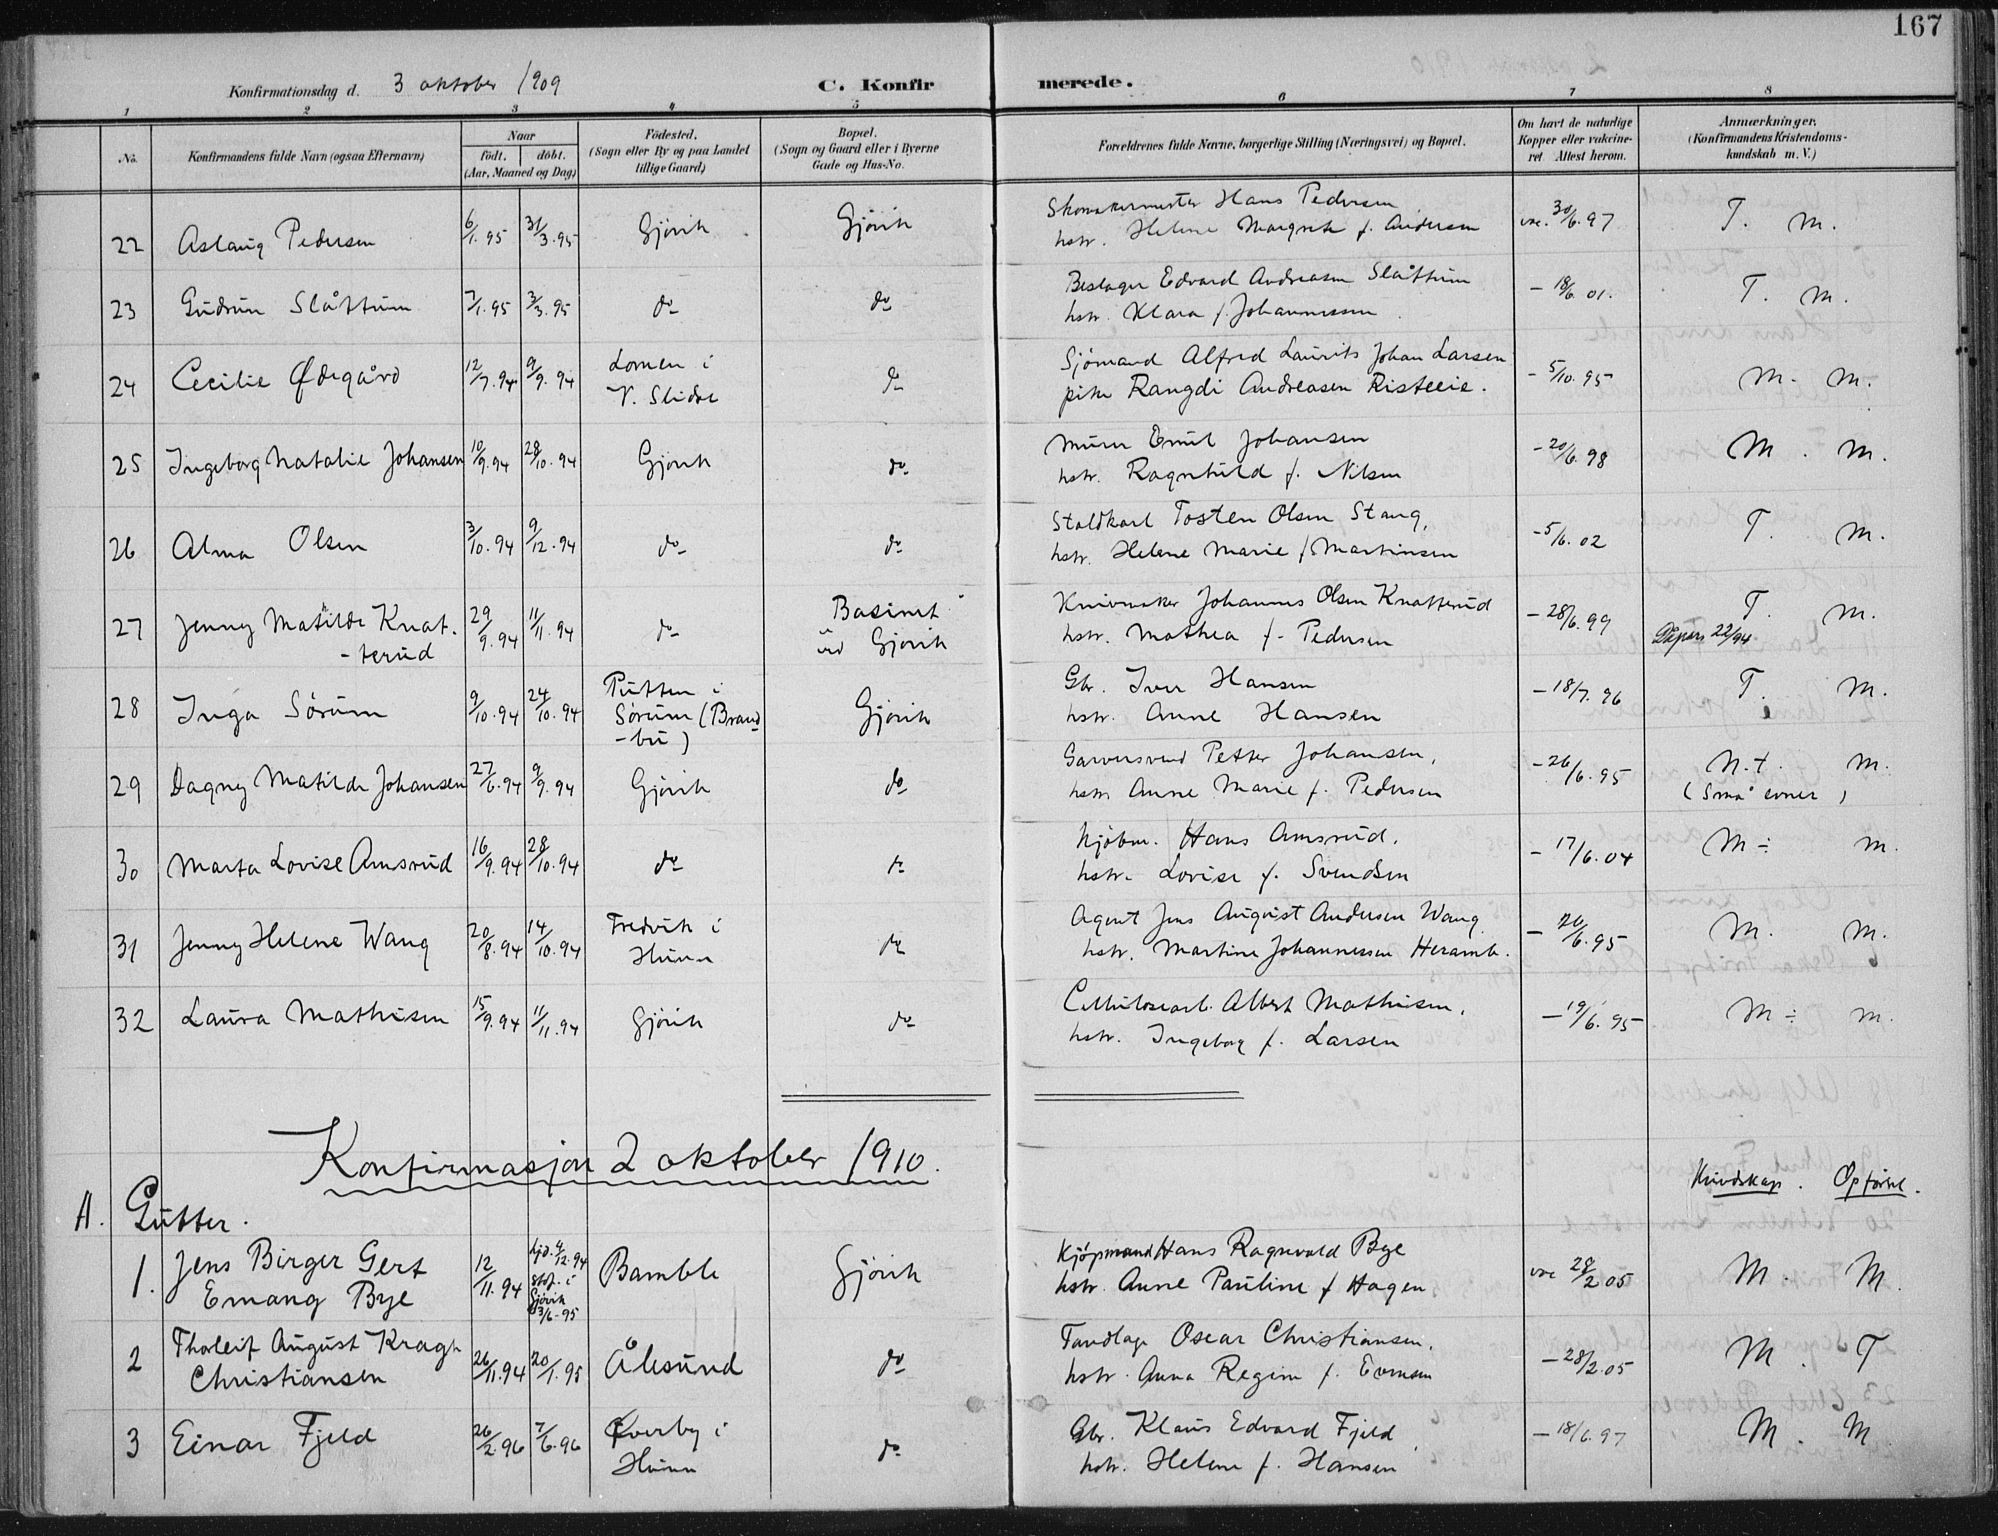 167
Konfirmationsdag d. 3 oktober 1909
C. Konfirmerede.
1 2 3 4 5 6 7 8
No.
Konfirmandens fulde Navn (ogsaa Efternavn)
Naar
födt. döbt.
(Aar, Maaned og Dag)
Födested.
(Sogn eller By og paa Landet
tillige Gaard)
Bopæl.
(Sogn og Gaard eller i Byerne
Gade og Hus-No.
Forældrenes fulde Navne, borgerlige Stilling (Næringsvei) og Bopæl.
Om havt de naturlige
Kopper eller vakcine-
ret Attest herom.
Anmærkninger.
(Konfirmandens Kristendoms-
kundskab m. V.)
22 Aslaug Pedersen 6/1.95 31/3.95 Gjövik Gjövik
Skomakermester Hans Pedersen
hstr. Helene Margrete f. Andersen
vac. 30/6.97 T. M.
23 Gudrun Slåttum 7/1.95 3/3.95 do do
Beslager Edvard Andreasen Slåttum
hstr. Klara f. Johannessen
- 18/6 01. T. M.
24 Cecilie Ødegård 12/7.94 9/9.94 Lomen i
V. Slidre do
Sjömand Alfred Laurits Johan Larsen
pike Rangdi Andreasen Risteeie.
- 5/10.95 M. M.
25 Ingeborg Natalie Johansen 10/9.94 28/10.94 Gjövik do
Murer Emil Johansen
hstr. Ragnhild f. Nilsen
- 20/6.98 M. M.
26 Alma Olsen 3/10.94 9/12.94 do do
Staldkarl Tosten Olsen Stang,
hstr. Helene Marie f Martinsen
- 5/6.02 T. M.
27 Jenny Mathilde Knat-
-terud 29/9.94 11/11.94 do Basinet
ved Gjövik
Knivmaker Johannes Olsen Knatterud
hstr. Mathea f. Pedersen
- 28/6.99 T. M.
22/94
28 Inga Sörum 9/10.94 24/10.94 Putten i
Sörum (Brand-
-bu) Gjövik
Gbr. Iver Hansen
hstr. Anne Hansen
- 18/7.96 T. M.
29 Dagny Matilde Johansen 27/6.94 9/9.94 Gjövik do
Garversvend Petter Johansen,
hstr Anne Marie f. Pedersen
- 26/6.95 N.t. M.
(Små evner)
30 Marta Lovise Amsrud 16/9.94 28/10.94 do do
Kjöbm. Hans Amsrud.
hstr. Lovise f. Svendsen
- 17/6.04 M ÷ M.
31 Jenny Helene Wang 20/8.94 14/10.94 Fredvik i
Hunn do
Agent Jens August Andersen Wang
hstr. Martine Johannessen Heramb.
- 26/6.95 M. M.
32 Laura Mathisen 15/9.94 11/11.94 Gjövik do
Cellulosearb. Albert Mathisen,
hstr. Ingeborg f. Larsen
- 19/6.95 M ÷ M.
Konfirmasjon 2 oktober 1910.
Kundskap. Opförsel.
A. Gutter.
1. Jens Birger Gert
Emang Bye 12/11.94 hjd. 4/12.94
stf. i
Gjövik
3/6-95 Bamble Gjövik
Kjöpmand Hans Ragnvald Bye
hstr. Anne Pauline f Hagen
vac 28/2 05 M. M.
2 Tholeif August Kragh
Christiansen 26/11.94 20/1.95 Ålesund do
Tandlæge Oscar Christiansen.
hstr. Anna Regine f. Evensen
- 28/2.05 M. T
3 Einar Fjeld 26/2.96 7/6.96 Qverby i
Hunn do
Gbr. Klaus Edvard Fjeld
hstr. Helene f. Hansen
- 18/6.97 M. M.